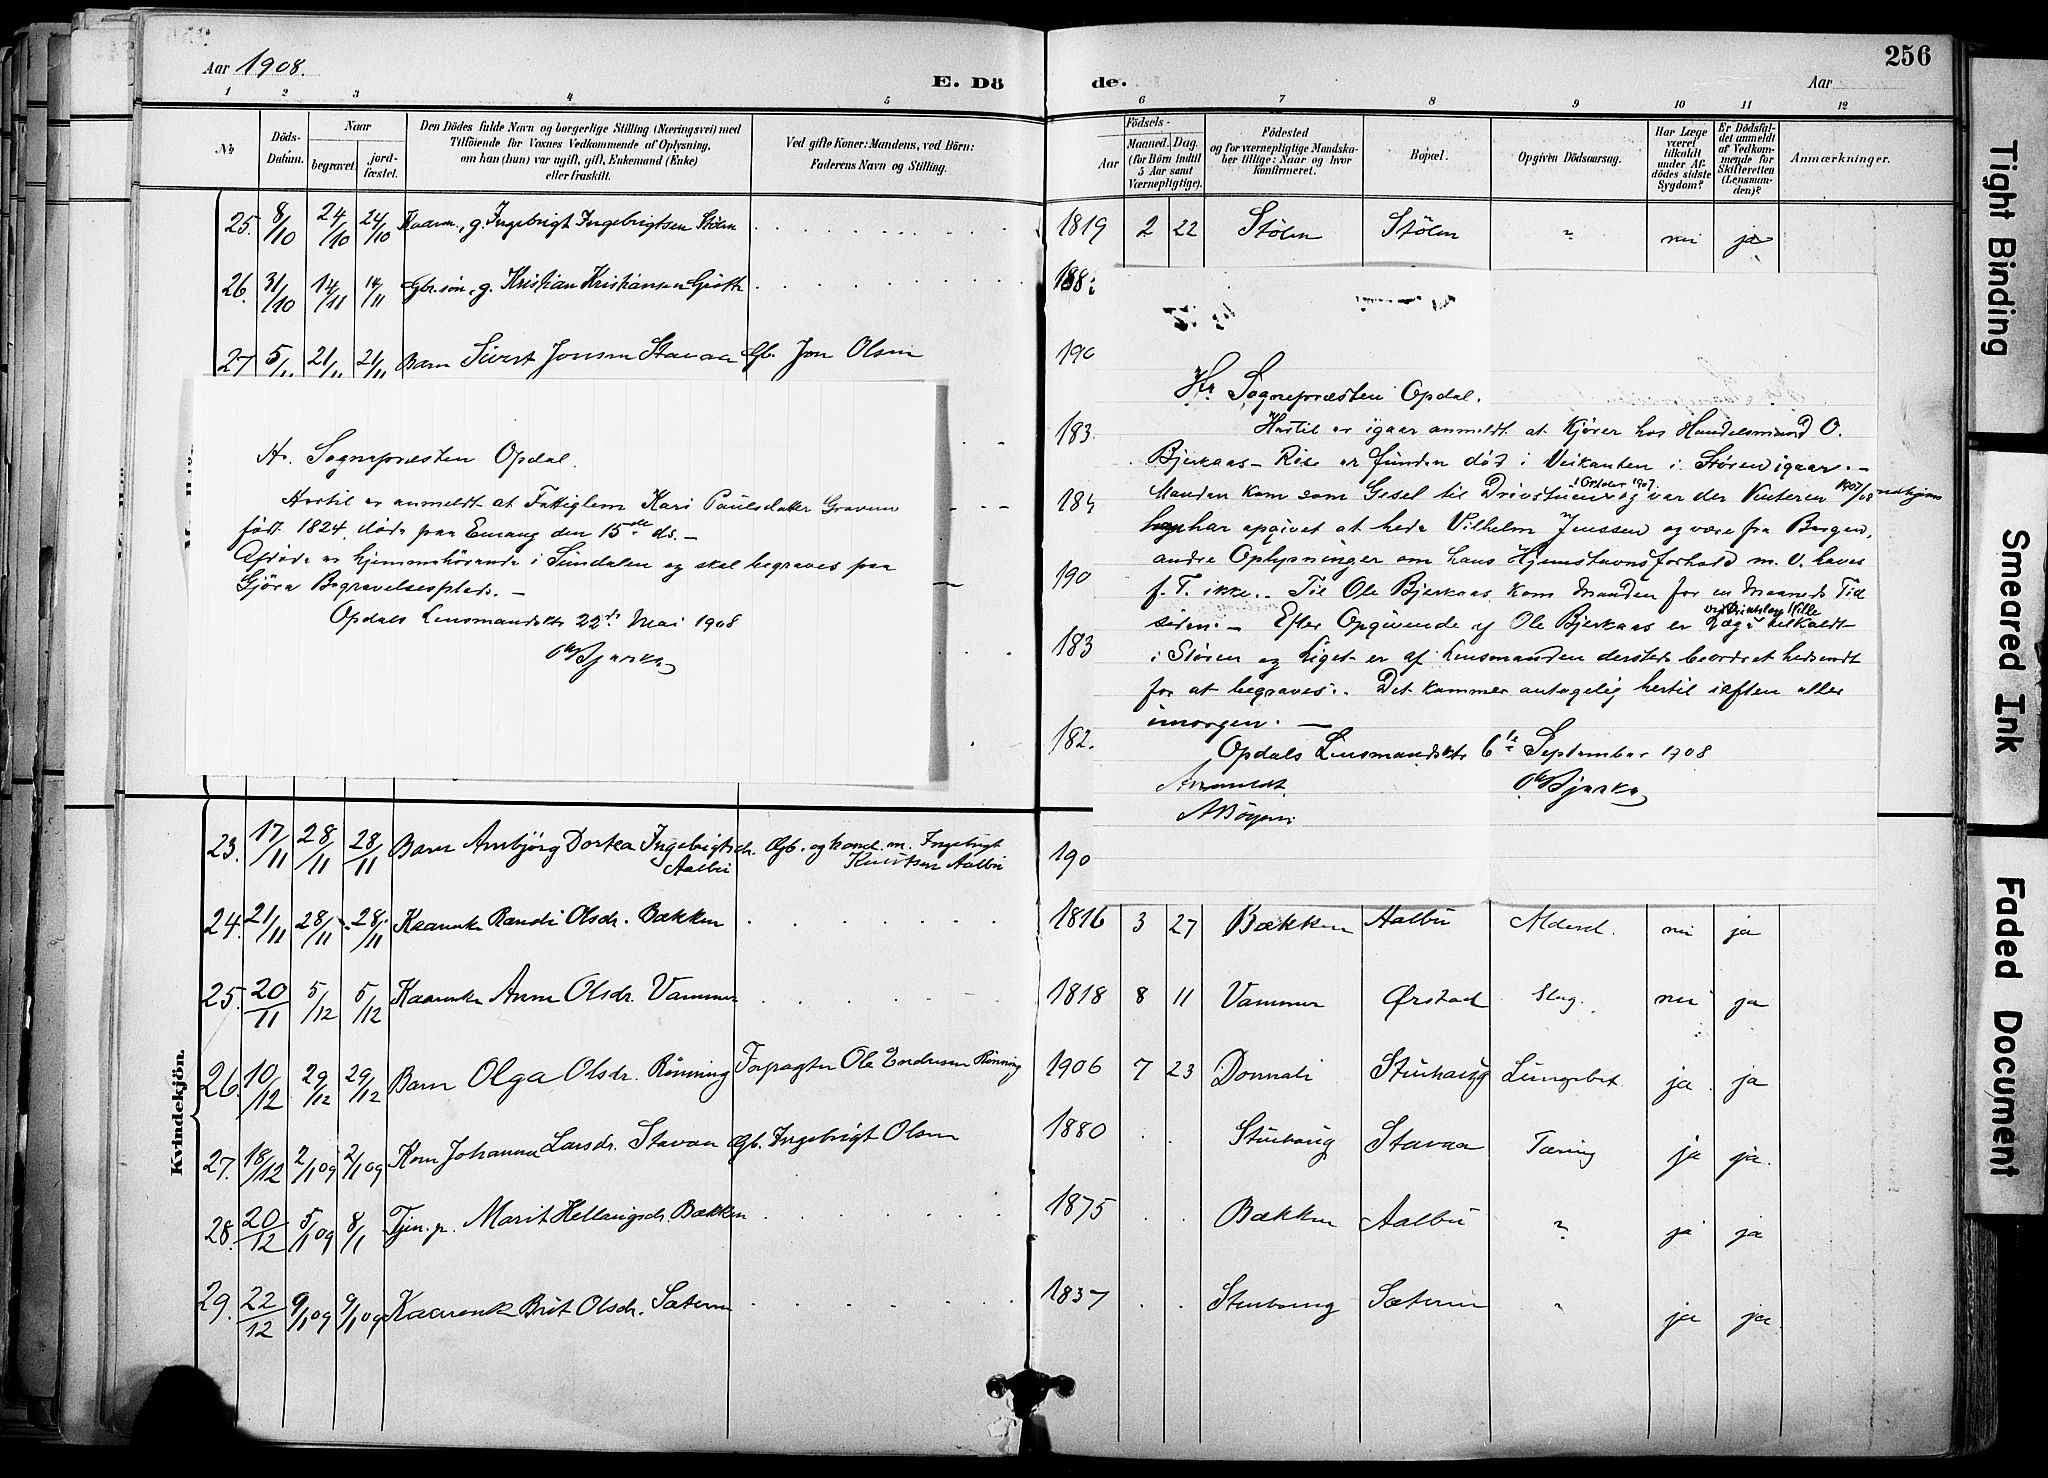 Aar 1908.
E. Dö
1 2 3 4 5
№
Döds-Datum.
Naar
begravet.
jord-fæstet.
Den Dödes fulde Navn og borgerlige Stilling (Næringsvei) med
Tilföiende for Voxnes Vedkommende af Oplysning,
om han (hun) var ugift, gift, Enkemand (Enke)
eller fraskilt.
Ved gifte Koner: Mandens, ved Börn:
Faderens Navn og Stilling.
25. 8/10 24/10 24/10 Kaarm., g. Ingebrigt Ingebrigtsen Stölen
26. 31/10 14/11 14/11 Gbr.sön, g. Kristian Kristiansen
27 5/11 21/11 21/11 Barn Sivert Jonsen Stavaa Gb. Jon Olsen
Hr. Sognepræsten Opdal.
Hertil er anmeldt at Fattiglem Kari Paulsdatter Gravem
født 1824, døde paa Emang den 15de ds. –
Afdøde er hjemmehörende i Sundalen og skal begraves paa
Gjöra Begravelsesplads. –
Opdals Lensmandsktr 22de Mai 1908
Kvindekjön.
23. 17/11 28/11 28/11 Barn Anbjörg Dortea Ingebrigtsdr. Aalbu Gb. og hand.m. Ingebrigt
Knutsen Aalbu
24. 21/11 28/11 28/11 Kaarenke Randi Olsdr. Bækken
25. 20/11 5/12 5/12 Kaarenke Anne Olsdr. Vammer
26. 10/12 29/12 29/12 Barn Olga Olsdr. Rönning Forpagter Ole Endresen Rönning
27. 18/12 2/1 09 2/1 09 Kone Johanna Larsdr. Stavaa Gb. Ingebrigt Olsen
28. 20/12 5/1 09 8/1 Tjen.p. Marit Hellaugsdr. Bækken
29. 22/12 9/1 09 9/1 09 Kaarenk Brit Olsdr. Sæteren
de.
256
Aar
6 7 8 9 10 11 12
Aar
Födsels-
Maaned. Dag.
(for Börn indtil
5 Aar samt
Værnepligtige).
Födested
og for værnepligtige Mandska-
ber tillige: Naar og hvor
konfirmeret.
Bopæl.
Opgiven Dödsaarsag.
Har Læge
været
tilkaldt
under Af-
dödes sidste
Sygdom?
Er Dödsfal-
det anmeldt
af Vedkom-
mende for
Skifteretten
(Lensman-
den)?
Anmærkninger.
1819 2 22 Stölen Stölen " nei ja
188
190
183
184
190
183
182
190
Hr. Sognepræsten Opdal.
Hertil er igaar anmeldt at Kjörer hos Handelsmand O.
Bjerkaas – Rise er funden död i Veikanten i Stören igaar. –
Manden kom som Gesel til Drivstuen i Oktober 1907. og var der Vinteren 1907/08
har opgivet at hede Vilhelm Jenssen og være fra Bergen,
andre Oplysninger om hans Hjemstavnsforhold m. v. haves
f. T. ikke. – Til Ole Bjerkaas kom Manden for en Maaneds Tid
siden. – Efter Opgivende af Ole Bjerkaas er Læge tilkaldt
i Stören og Liget er af Lensmanden dersteds beordret hidsendt
for at begraves. – Det kommer antagelig hertil iaften eller
imorgen. –
Opdals Lensmandsktr 6te September 1908
Anmeldt.
1816 3 27 Bækken Aalbu Aldersd. nei ja
1818 8 11 Vammer Ørstad Slag. nei ja
1906 7 23 Donnali Stenhaug Lungebet. ja ja
1880 Stenhaug Stavaa Tæring ja ja.
1875 Bækken Aalbu " ja ja
1837 Stenhaug Sæteren " ja ja.
Tight Binding
Smeared Ink
Faded Document